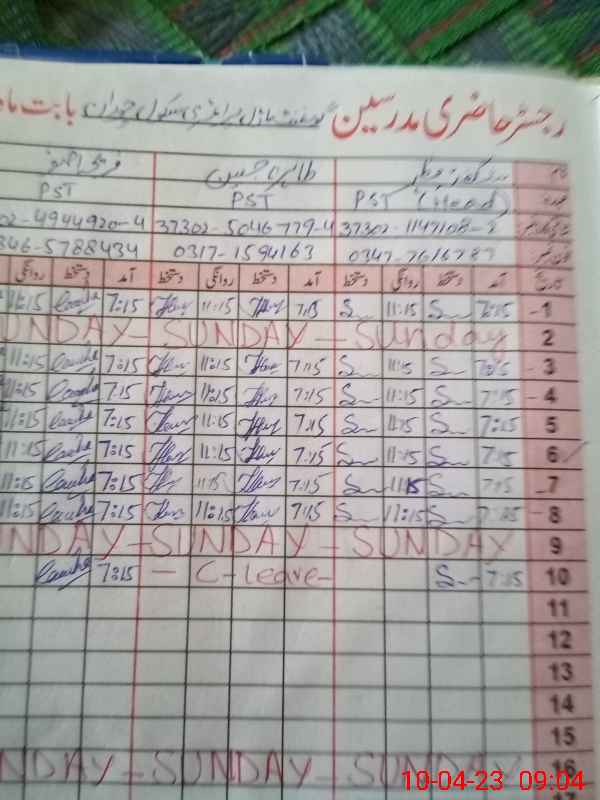 رجسٹر حاضری مدرسین گورنمنٹ ماڈل پرائمری سکول بابت ماہ
نام طاہرہ حسین
عہدہ (Head) PST PST PST
37302-1147108-2 37302-5046779-4 02-4944920-4
0347-7616787 0317-1594163 346-5788434
تاریخ آمد دستخط روانگی دستخط آمد دستخط روانگی دستخط آمد دستخط روانگی
1 7:15 11:15 7:15 11:15 7:15 11:15
2 Sunday - SUNDAY - UNDAY
3 7:15 11:15 7:15 11:15 7:15 11:15
4 7:15 11:15 7:15 11:15 7:15 11:15
5 7:15 11:15 7:15 11:15 7:15 11:15
6 7:15 11:15 7:15 11:15 7:15 11:15
7 7:15 11:15 7:15 11:15 7:15 11:15
8 7:15 11:15 7:15 11:15 7:15 11:15
9 SUNDAY - SUNDAY - NDAY
10 7:15 - C-leave - 7:15
11
12
13
14
15
16 SUNDAY - SUNDAY - NDAY
10-04-23 09:04